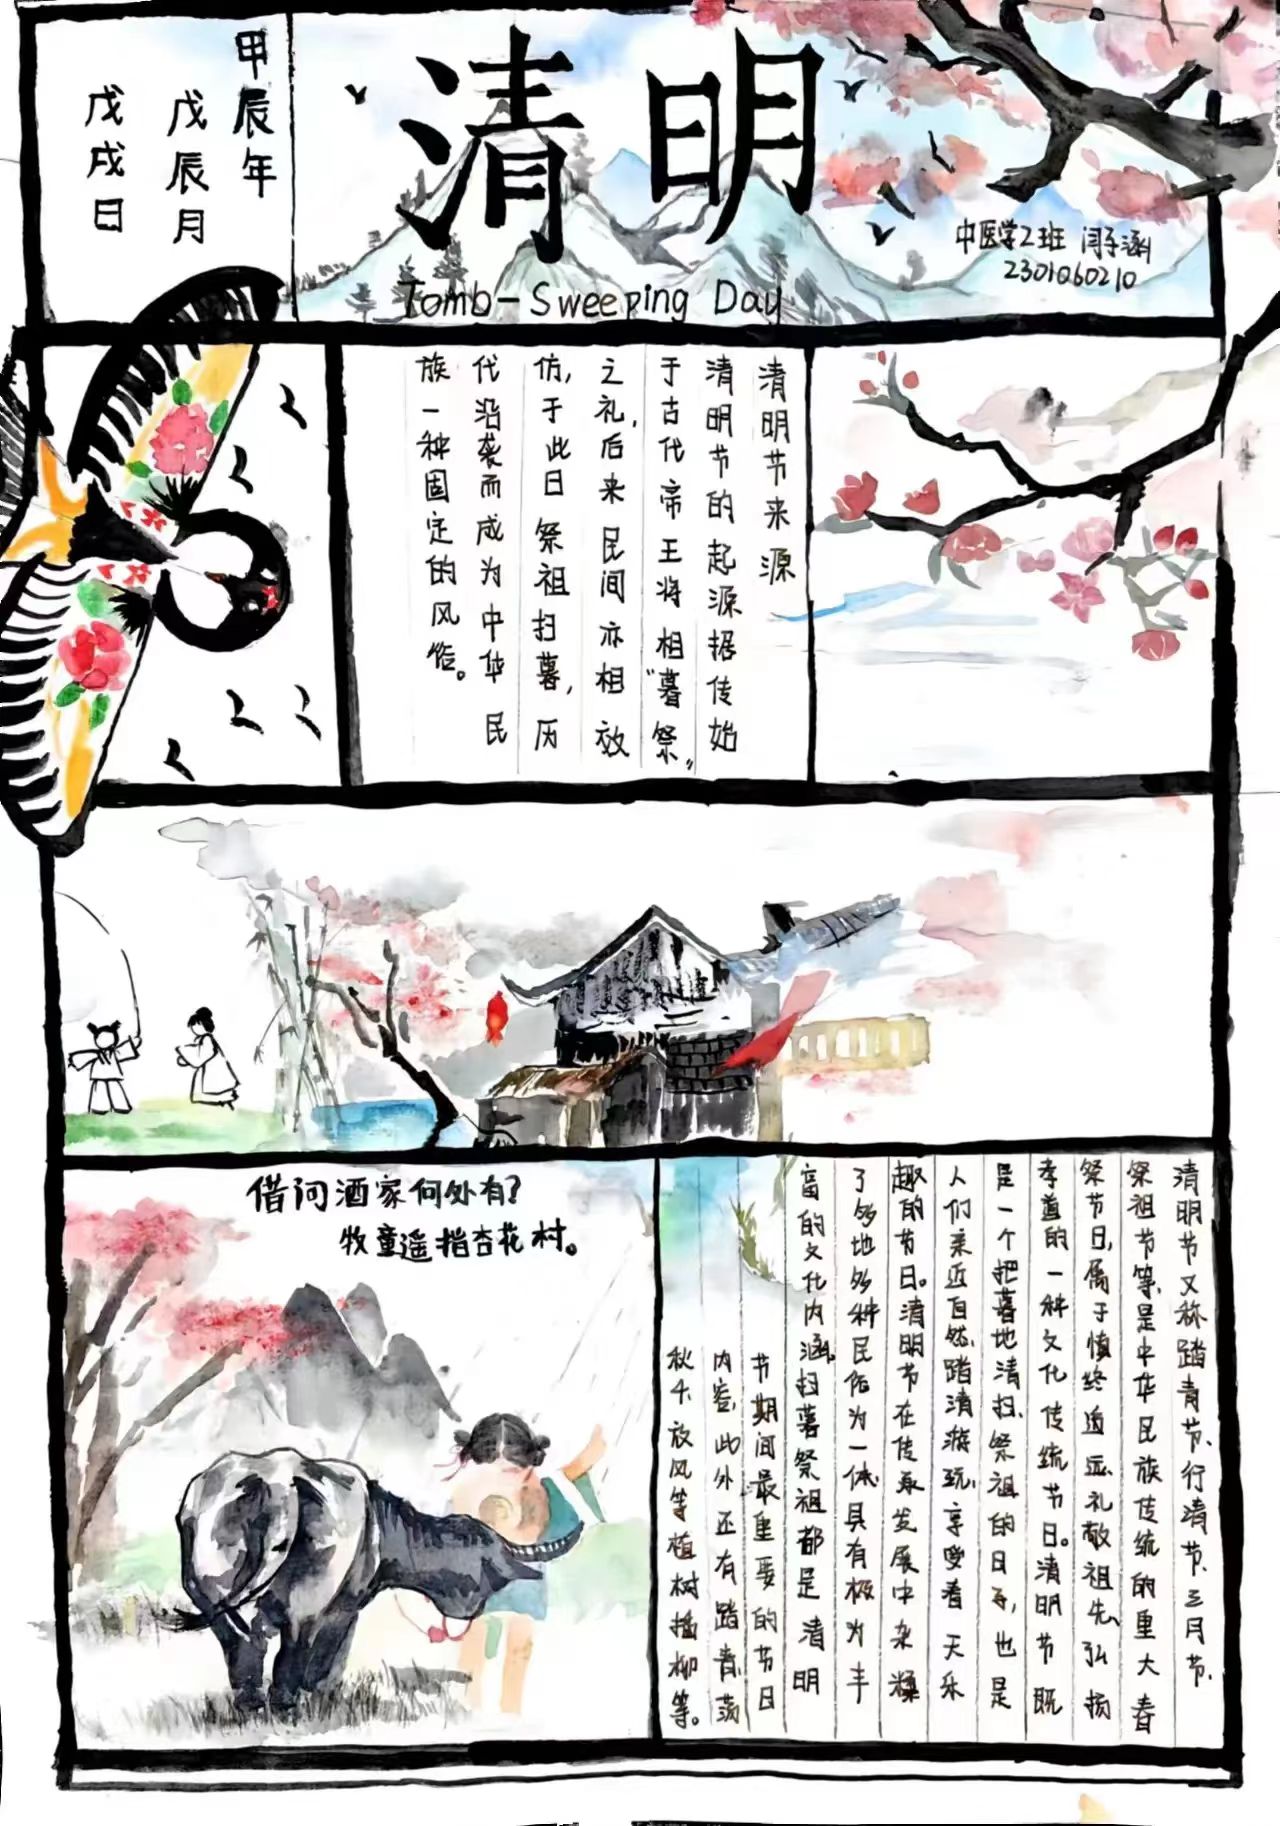 甲辰年
戊辰月
戊戌日
清明
Tomb-Sweeping Day
中医学2班 闫子涵
2301060210
清明节来源
清明节的起源据传始
于古代帝王将相"暮祭"
之礼,后来民间亦相放
仿,于此日祭祖扫暮,历
代沿袭而成为中华民
族一种固定的风俗。
借问酒家何处有?
牧童遥指杏花村。
清明节又称踏青节、行清节、三月节、
祭祖节等,是中华民族传统的重大春
祭节日,属于慎终追远、礼敬祖先、弘扬
孝道的一种文化传统节日。清明节既
是一个把暮地清扫、祭祖的日子,也是
人们亲近自然、踏清游玩、享受看天乐
趣的节日。清明节在传承发展中杂糅
了多地多种民俗为一体,具有极为丰
富的文化内涵。扫暮祭祖都是清明
节期间最重要的节日
内容,此外还有踏青、荡
秋千、放风等植树插柳等。